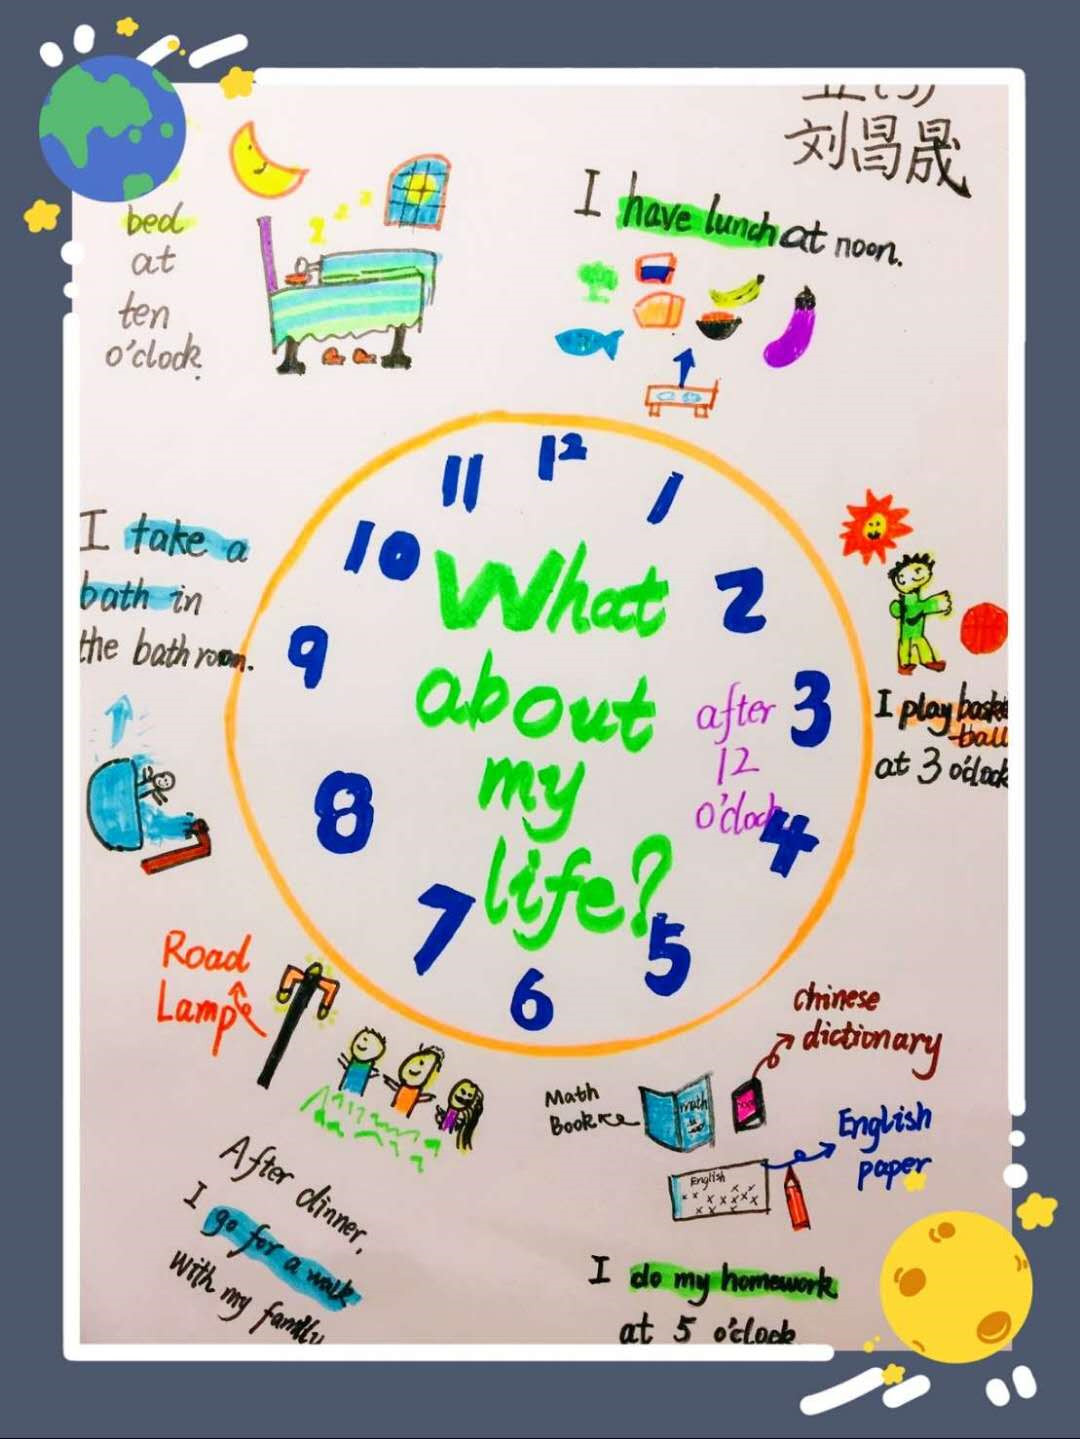 刘昌晟
I have lunch at noon.
bed
at
ten
o'clock.
12
1
2
3
4
5
6
7
8
9
10
11
What
about
my
life?
after
12
o'clock
I play basket
-ball
at 3 o'clock
I take a
bath in
the bathroom.
Road
Lamp
After dinner,
I go for a walk
with my family
chinese
dictionary
Math
Book
math
English
paper
English
I do my homework
at 5 o'clock